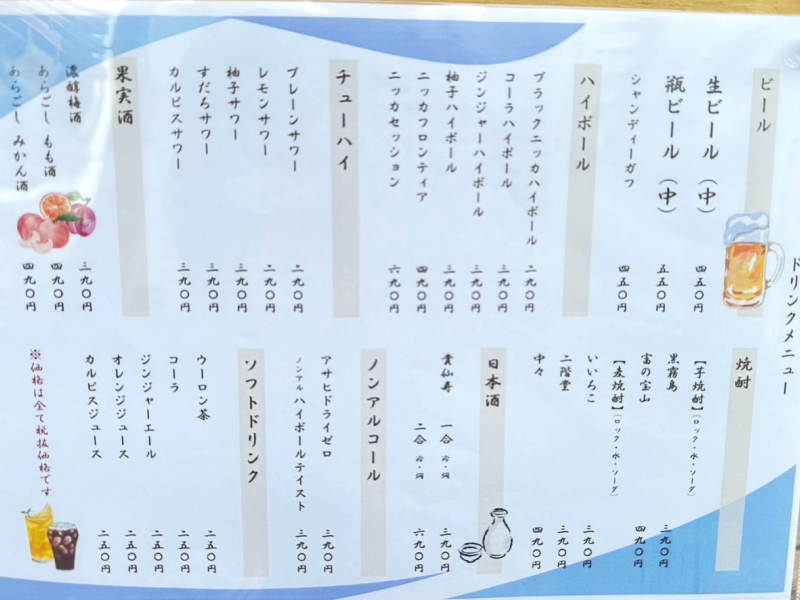 ドリンクメニュー
ビール
生ビール（中） 四五〇円
瓶ビール（中） 五五〇円
シャンディーガフ 四五〇円
ハイボール
ブラックニッカハイボール 二九〇円
コーラハイボール 三九〇円
ジンジャーハイボール 三九〇円
柚子ハイボール 三九〇円
ニッカフロンティア 四九〇円
ニッカセッション 六九〇円
チューハイ
プレーンサワー 二九〇円
レモンサワー 二九〇円
柚子サワー 三九〇円
すだちサワー 三九〇円
カルピスサワー 三九〇円
果実酒
濃醇梅酒 三九〇円
あらごし もも酒 四九〇円
あらごし みかん酒 四九〇円
焼酎
【芋焼酎】（ロック・水・ソーダ）
黒霧島 三九〇円
富の宝山 四九〇円
【麦焼酎】（ロック・水・ソーダ）
いいちこ 三九〇円
二階堂 三九〇円
中々 四九〇円
日本酒
貴仙寿 一合 冷・燗 三九〇円
二合 冷・燗 六九〇円
ノンアルコール
アサヒドライゼロ 三九〇円
ノンアルハイボールテイスト 三九〇円
ソフトドリンク
ウーロン茶 二五〇円
コーラ 二五〇円
ジンジャーエール 二五〇円
オレンジジュース 二五〇円
カルピスジュース 二五〇円
※価格は全て税抜価格です